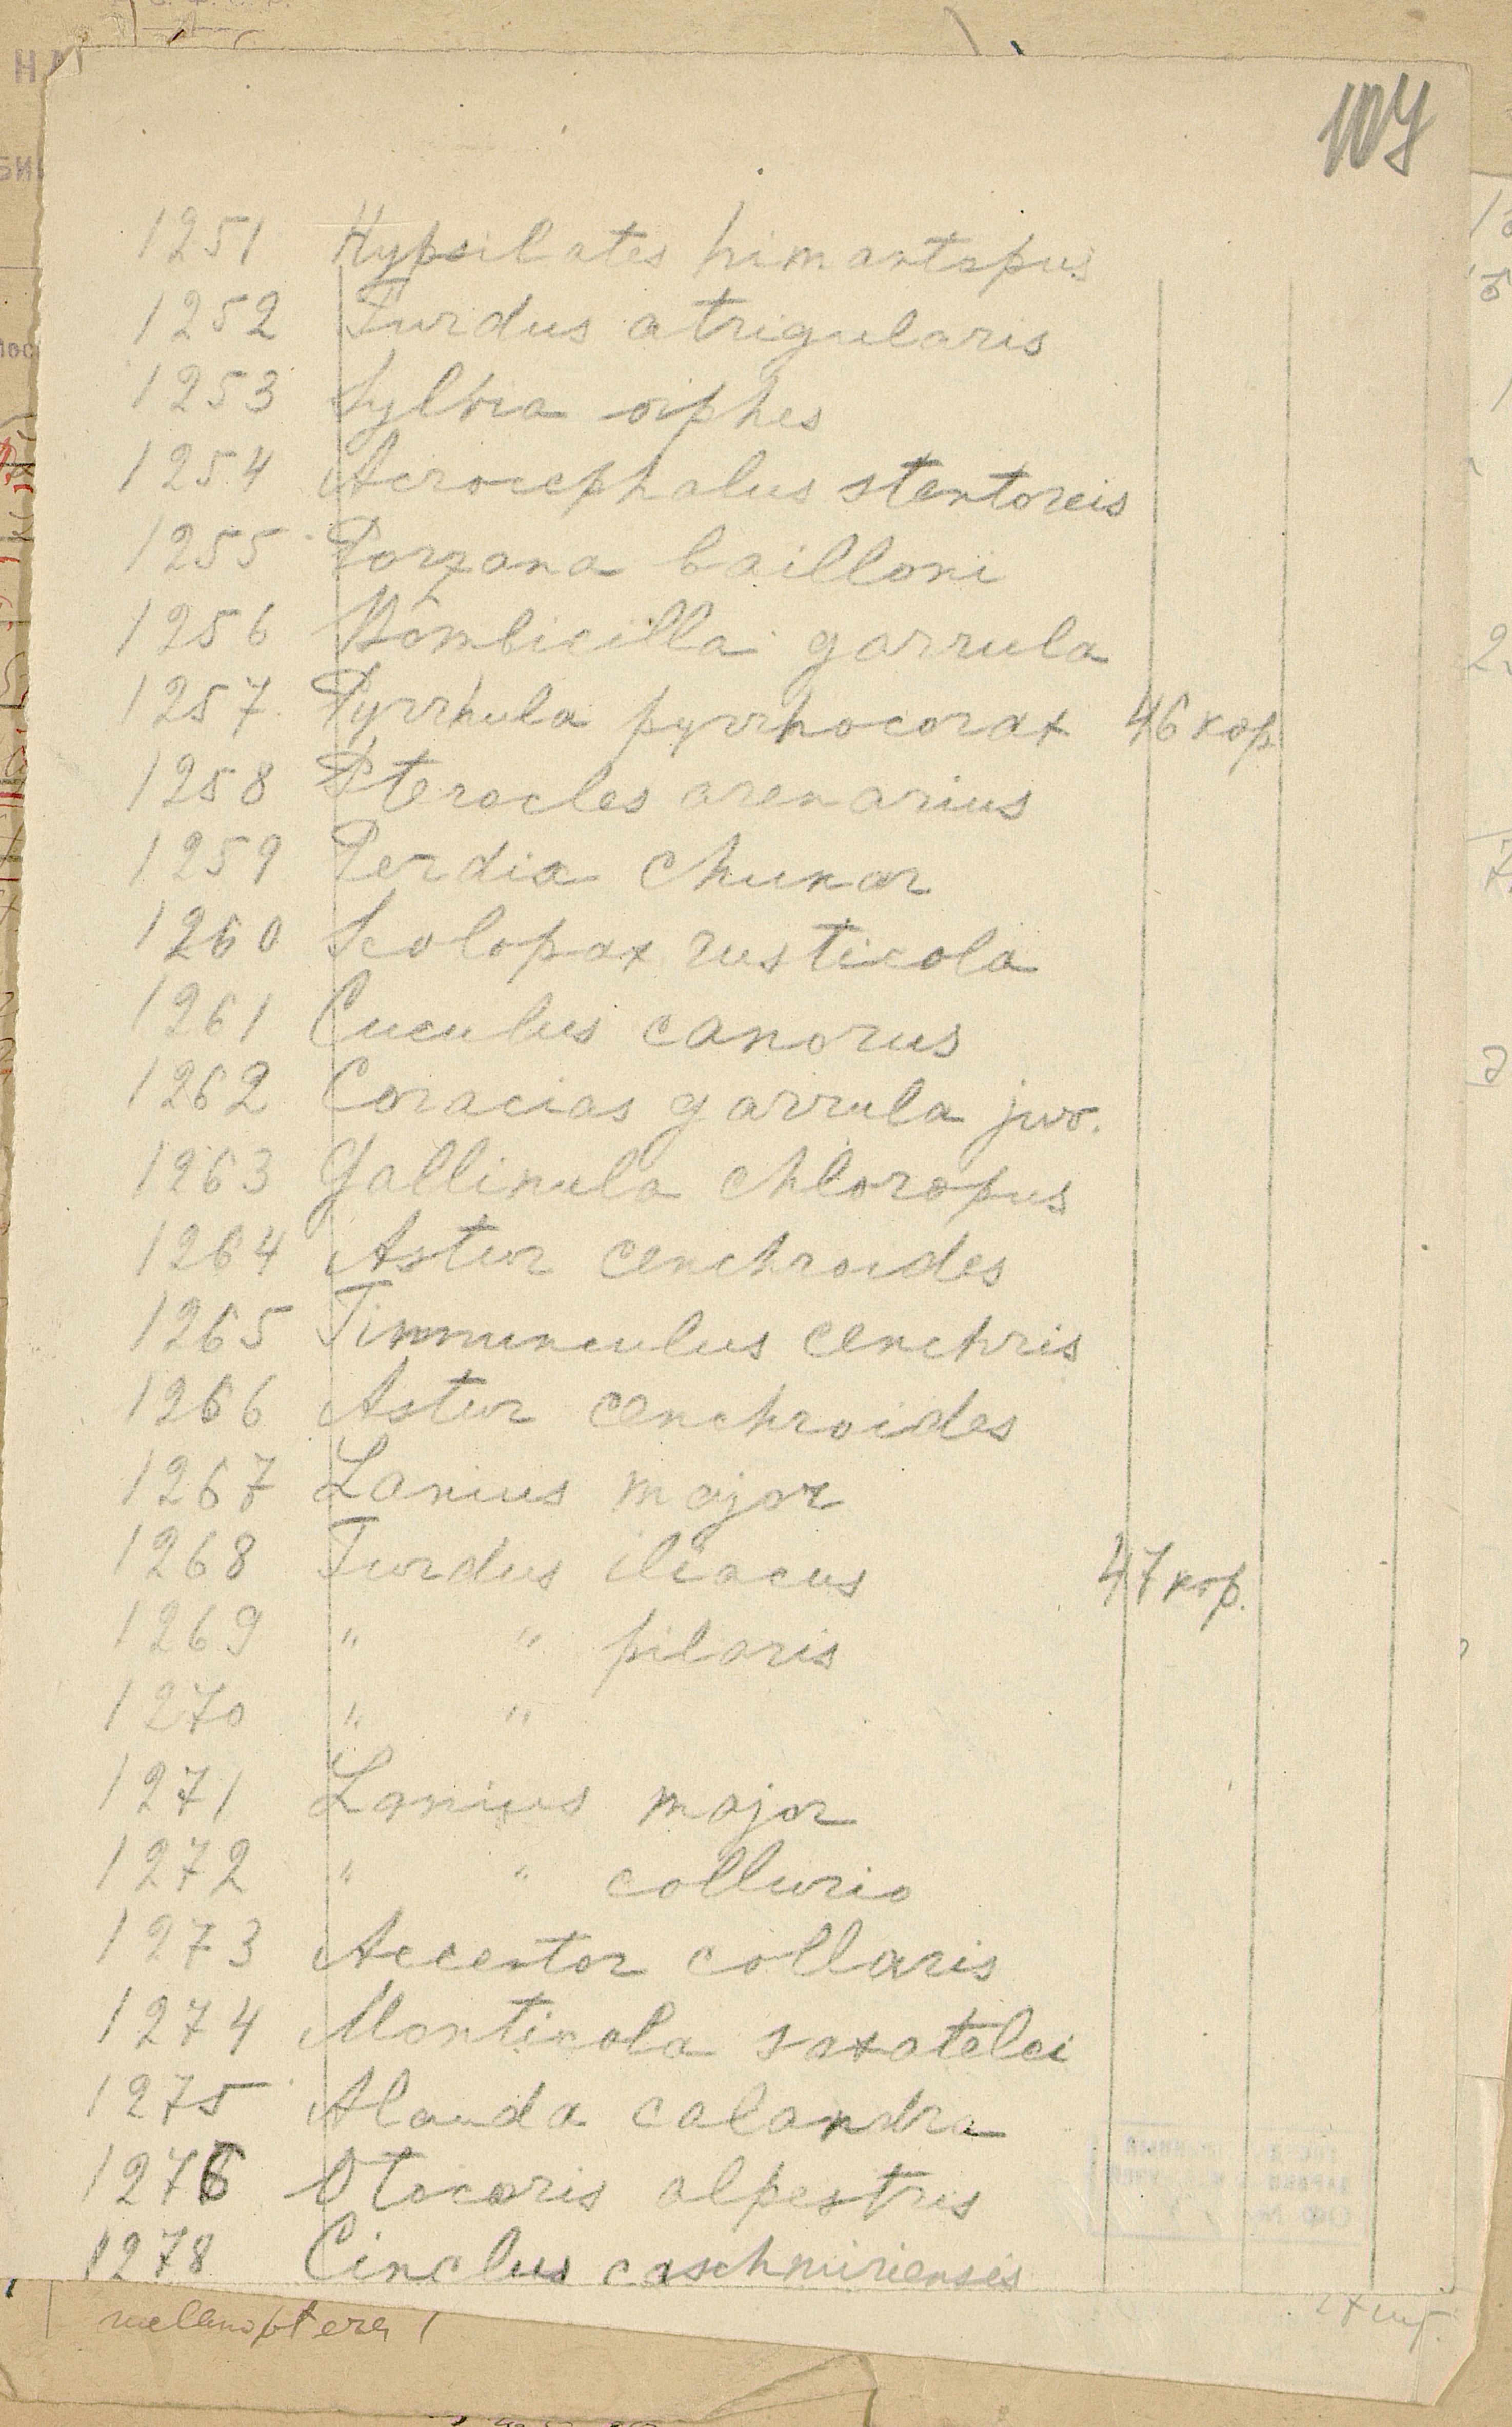 107
1251 Hypsilates himantopus
1252 Turdus atrigularis
1253 Sylvia orphes
1254 Acrocephalus stentoreis
1255 Porzana bailloni
1256 Bombicilla garrula
1257 Pyrrhula pyrrhocorax 46 кор.
1258 Pterocles arenarius
1259 Perdix chukar
1260 Scolopax rusticola
1261 Cuculus canorus
1262 Coracias garrula juv.
1263 Gallinula chloropus
1264 Astur cenchroides
1265 Tinnunculus cenchris
1266 Astur cenchroides
1267 Lanius major
1268 Turdus iliacus 47 кор.
1269 " " pilaris
1270 " "
1271 Lanius major
1272 " " collurio
1273 Accentor collaris
1274 Monticola saxatelei
1275 Alauda calandra
1276 Otocoris alpestris
1278 Cinclus caschmiriensis
27 шт.
melanoptera 1